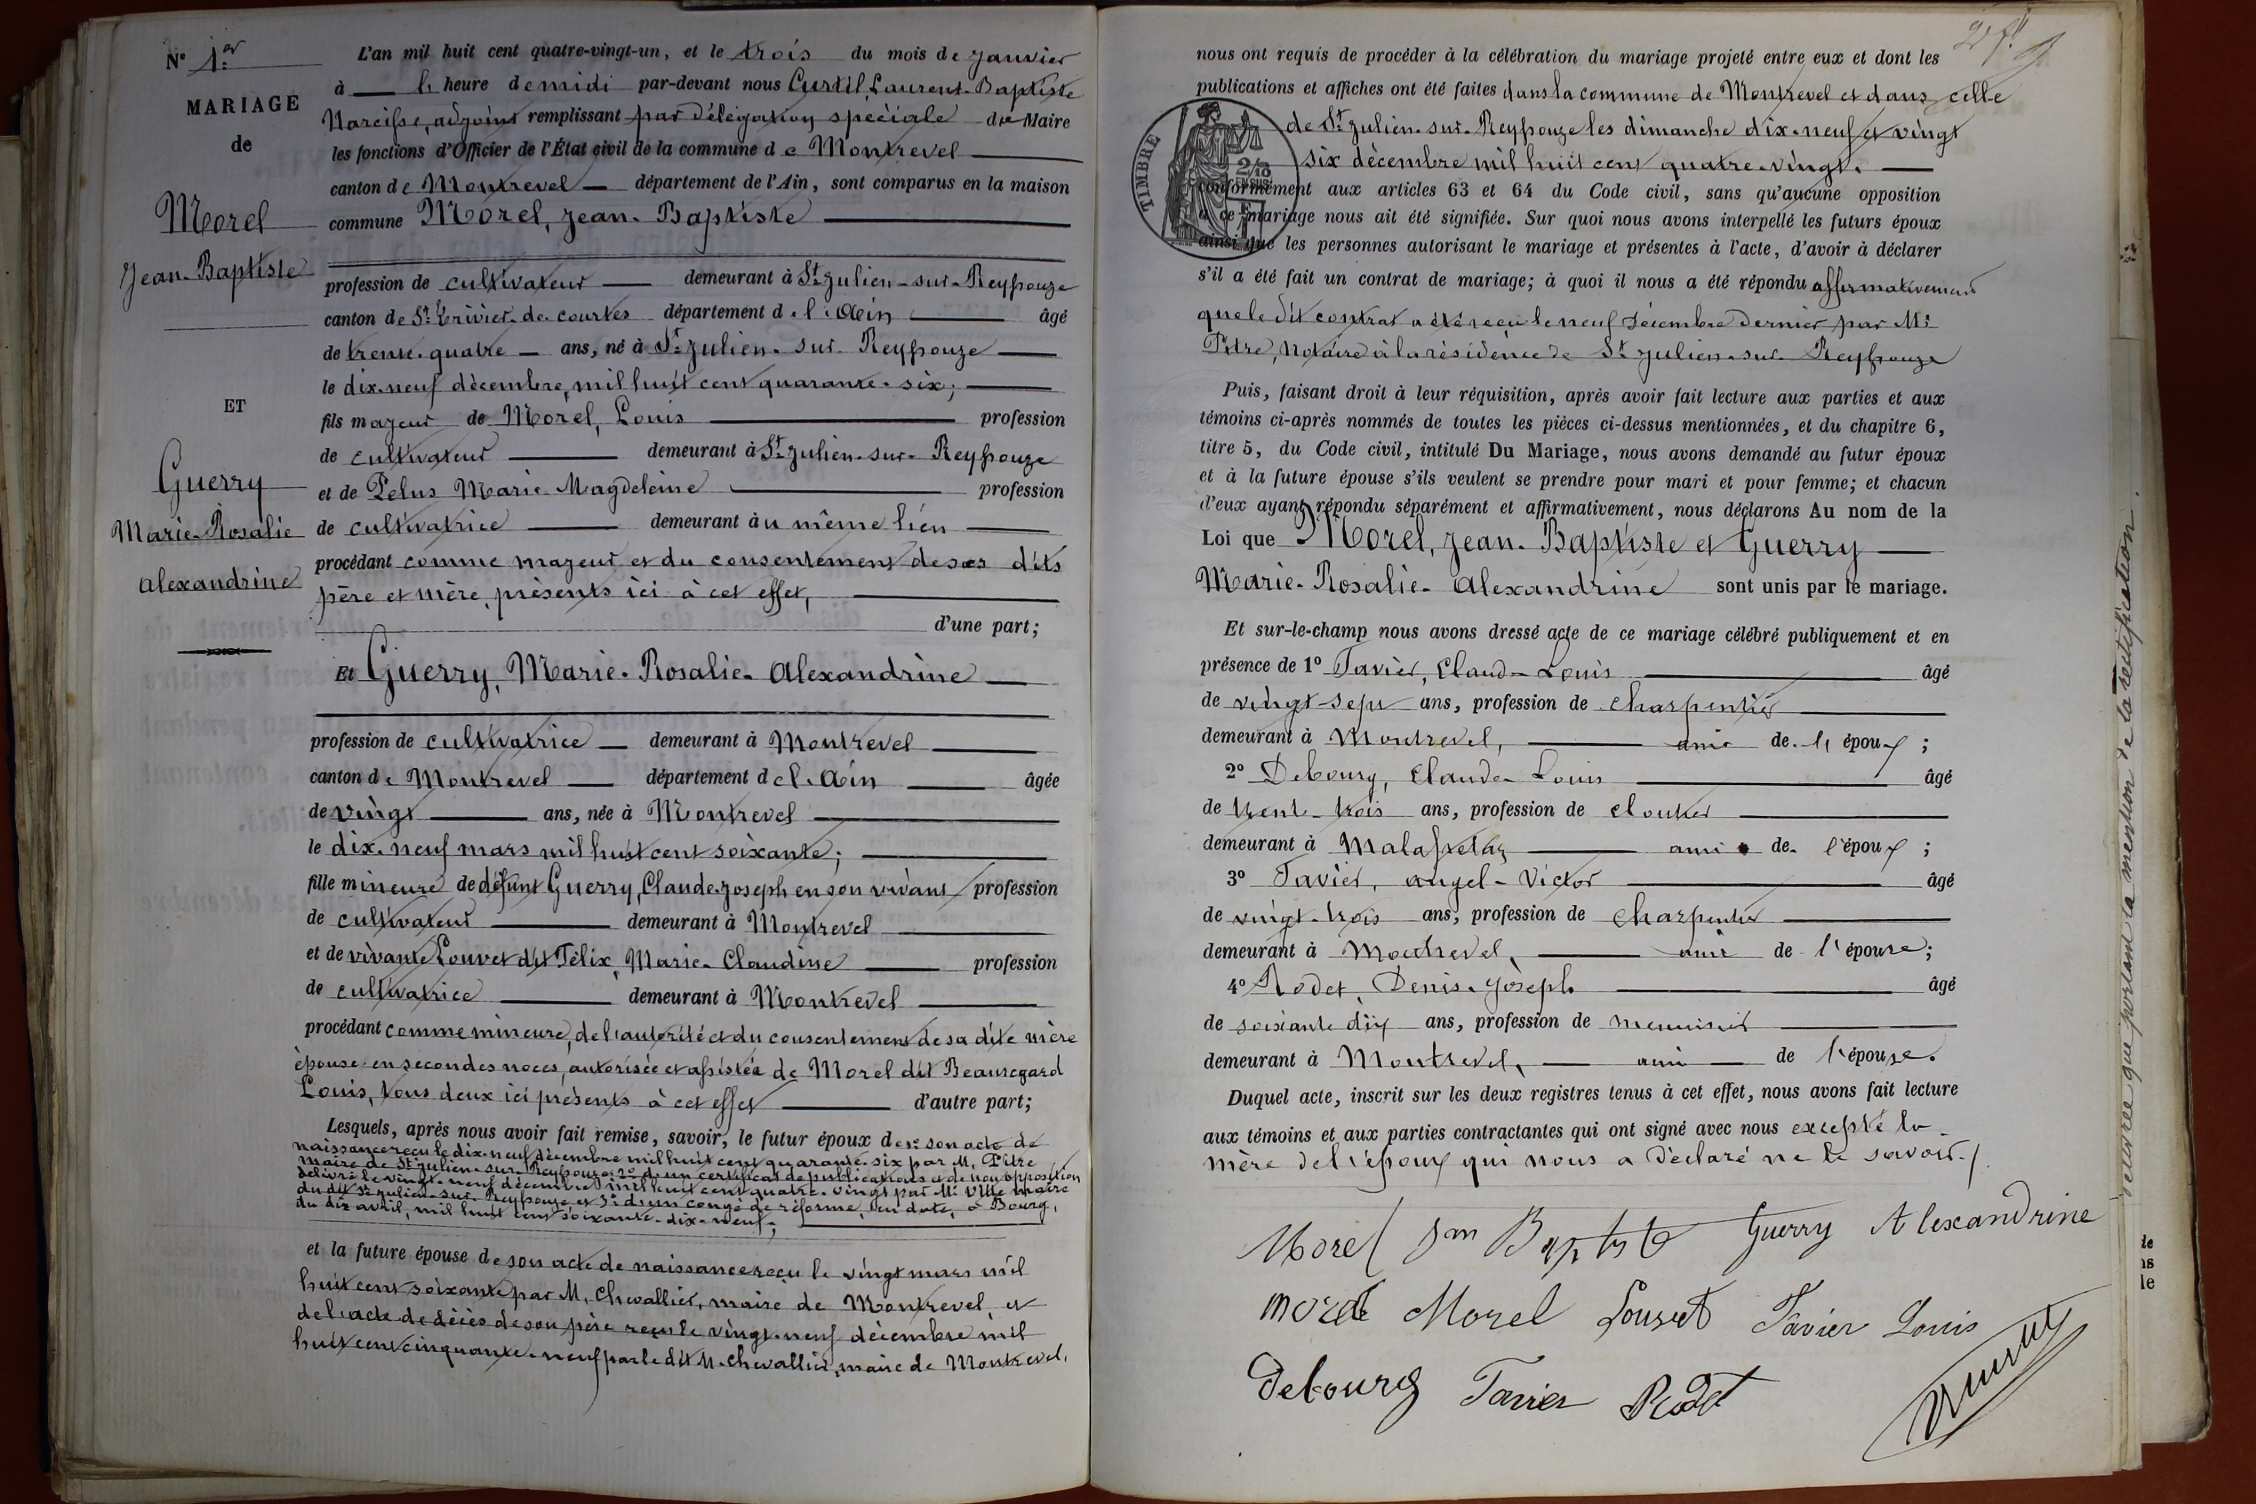 N° 1er
MARIAGE
de
Morel
Jean-Baptiste
ET
Guerry
Marie-Rosalie
Alexandrine
L'an mil huit cent quatre-vingt-un, et le trois du mois de janvier
à — h heure de midi par-devant nous Curtil, Laurent-Baptiste
Narcisse, adjoint remplissant par délégation spéciale du Maire
les fonctions d'Officier de l'État civil de la commune de Montrevel
canton de Montrevel — département de l'Ain, sont comparus en la maison
commune Morel, Jean-Baptiste
profession de cultivateur — demeurant à St Julien-sur-Reyssouze
canton de St Trivier-de-courtes département de l'Ain — âgé
de trente-quatre — ans, né à St Julien-sur-Reyssouze
le dix-neuf décembre, mil huit cent quarante-six;
fils majeur de Morel, Louis — profession
de cultivateur — demeurant à St Julien-sur-Reyssouze
et de Pelus Marie Magdeleine — profession
de cultivatrice — demeurant au même lieu
procédant comme majeur et du consentement de ses dits
père et mère, présents ici à cet effet,
d'une part;
Et Guerry, Marie-Rosalie-Alexandrine
profession de cultivatrice — demeurant à Montrevel
canton de Montrevel — département de l'Ain — âgée
de vingt — ans, née à Montrevel
le dix-neuf mars mil huit cent soixante;
fille mineure de défunt Guerry, Claude-Joseph en son vivant profession
de cultivateur — demeurant à Montrevel
et de vivante Louvet dit Félix, Marie-Claudine — profession
de cultivatrice — demeurant à Montrevel
procédant comme mineure, de l'autorité et du consentement de sa dite mère
épouse en secondes noces, autorisée et assistée de Morel dit Beauregard
Louis, tous deux ici présents à cet effet — d'autre part;
Lesquels, après nous avoir fait remise, savoir, le futur époux de 1° son acte de
naissance reçu le dix-neuf décembre mil huit cent quarante-six par M. Pitre
maire de St Julien-sur-Reyssouze 2° d'un certificat de publications et de non opposition
délivré le vingt-neuf décembre mil huit cent quatre-vingt par M. maire
du dit St Julien-sur-Reyssouze, et 3° d'un congé de réforme, en date, à Bourg,
du dix avril, mil huit cent soixante-dix-neuf;
et la future épouse de son acte de naissance reçu le vingt mars mil
huit cent soixante par M. Chevallier, maire de Montrevel, et
de l'acte de décès de son père reçu le vingt-neuf décembre mil
huit cent cinquante-neuf par le dit M. Chevallier, maire de Montrevel,
nous ont requis de procéder à la célébration du mariage projeté entre eux et dont les
publications et affiches ont été faites dans la commune de Montrevel et dans celle
de St Julien-sur-Reyssouze les dimanche dix-neuf et vingt
six décembre mil huit cent quatre-vingt.
TIMBRE
2/10
EN SUS
conformément aux articles 63 et 64 du Code civil, sans qu'aucune opposition
à ce mariage nous ait été signifiée. Sur quoi nous avons interpellé les futurs époux
ainsi que les personnes autorisant le mariage et présentes à l'acte, d'avoir à déclarer
s'il a été fait un contrat de mariage; à quoi il nous a été répondu affirmativement
que le dit contrat a été reçu le neuf décembre dernier par Me
Pitre, Notaire à la résidence de St Julien-sur-Reyssouze
Puis, faisant droit à leur réquisition, après avoir fait lecture aux parties et aux
témoins ci-après nommés de toutes les pièces ci-dessus mentionnées, et du chapitre 6,
titre 5, du Code civil, intitulé Du Mariage, nous avons demandé au futur époux
et à la future épouse s'ils veulent se prendre pour mari et pour femme; et chacun
d'eux ayant répondu séparément et affirmativement, nous déclarons Au nom de la
Loi que Morel, Jean-Baptiste et Guerry
Marie-Rosalie-Alexandrine sont unis par le mariage.
Et sur-le-champ nous avons dressé acte de ce mariage célébré publiquement et en
présence de 1° Tavier, Claude-Louis — âgé
de vingt-sept ans, profession de charpentier
demeurant à Montrevel, — ami de l'époux;
2° Debourg, Claude-Louis — âgé
de trente-trois ans, profession de cloutier
demeurant à Malafretaz — ami de l'époux;
3° Tavier, Angel-Victor — âgé
de vingt-trois ans, profession de charpentier
demeurant à Montrevel, — ami de l'épouse;
4° Rodet, Denis-Joseph — âgé
de soixante dix ans, profession de menuisier
demeurant à Montrevel, — ami — de l'épouse.
Duquel acte, inscrit sur les deux registres tenus à cet effet, nous avons fait lecture
aux témoins et aux parties contractantes qui ont signé avec nous excepté la
mère de l'époux qui nous a déclaré ne le savoir.
Morel Jean Baptiste Guerry Alexandrine
Morel Morel Louvet Tavier Louis
Debourg Tavier Rodet
délivrée que portant la mention de la rectification.
de
ns
le